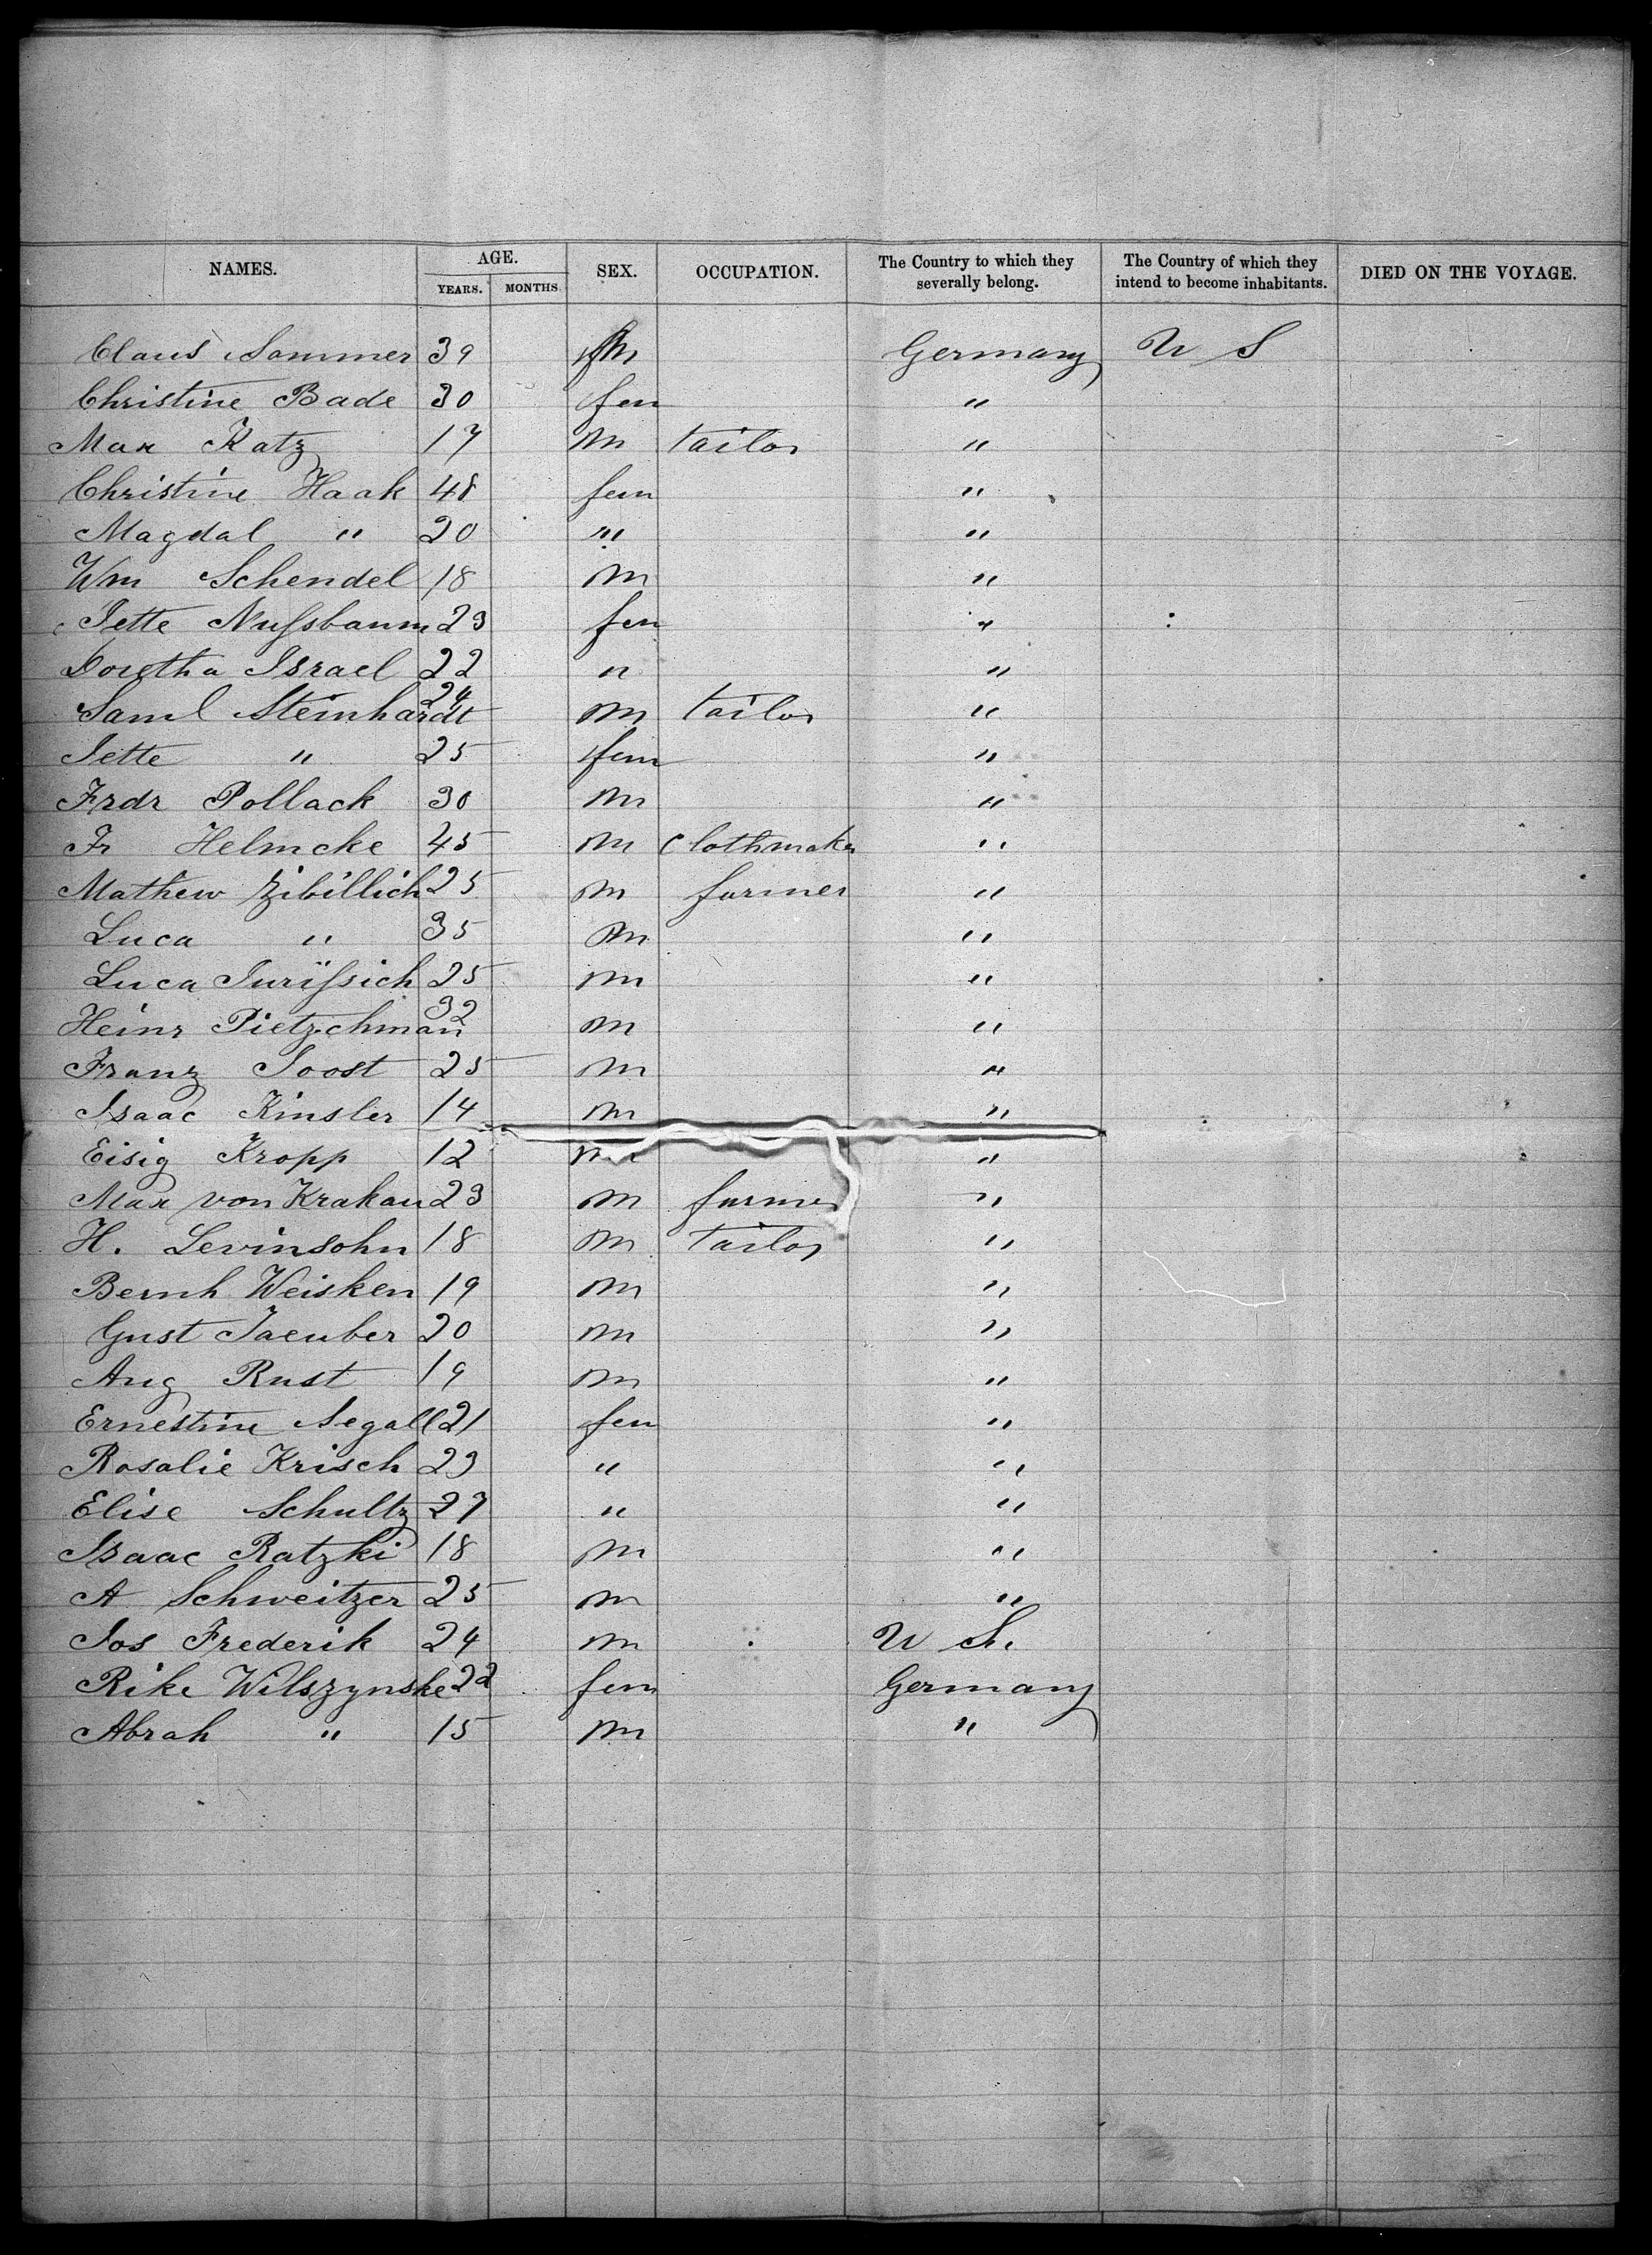 NAMES. AGE. SEX. OCCUPATION. The Country to which they severally belong. The Country of which they intend to become inhabitants. DIED ON THE VOYAGE.
YEARS. MONTHS
Claus Sommer 39 m Germany U S
Christine Bade 30 fem "
Max Katz 17 m tailor "
Christine Haak 48 fem "
Magdal " 20 " "
Wm Schendel 18 m "
Jette Nußbaum 23 fem "
Doretha Israel 22 " "
Saml Steinhardt 24 m tailor "
Jette " 25 fem "
Frdr Pollack 30 m "
Fr Helmcke 45 m Clothmaker "
Mathew Zibillich 25 m farmer "
Luca " 35 m "
Luca Jurißich 25 m "
Heinr Pietzchman 32 m "
Franz Joost 25 m "
Isaac Kinsler 14 m "
Eisig Kropp 12 m "
Max von Krakau 23 m farmer "
H. Levinsohn 18 m tailor "
Bernh Weisken 19 m "
Gust Taeuber 20 m "
Aug Rust 19 m "
Ernestine Segall 21 fem "
Rosalie Krisch 23 " "
Elise Schultz 27 " "
Isaac Ratzki 18 m "
A Schweitzer 25 m "
Jos Frederik 24 m U S.
Rike Wilszynske 22 fem Germany
Abrah " 15 m "